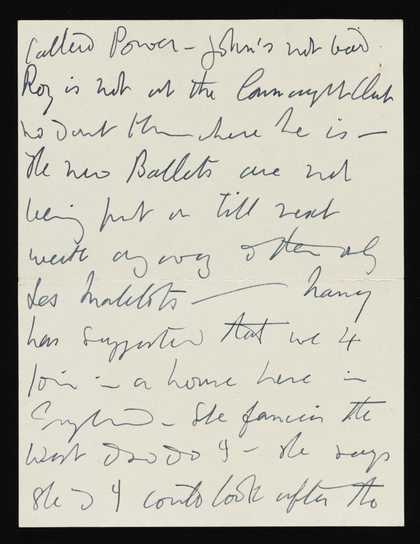 called Power – John's not bad.
Roy is not at the Connaught Club
no don't know where he is –
The new Ballets are not
being put on till next
week anyway & then only
Les Matelots — Nancy
has suggested that we 4
join in a house here in
England – She fancies the
West & so do I – She says
She & I could look after the